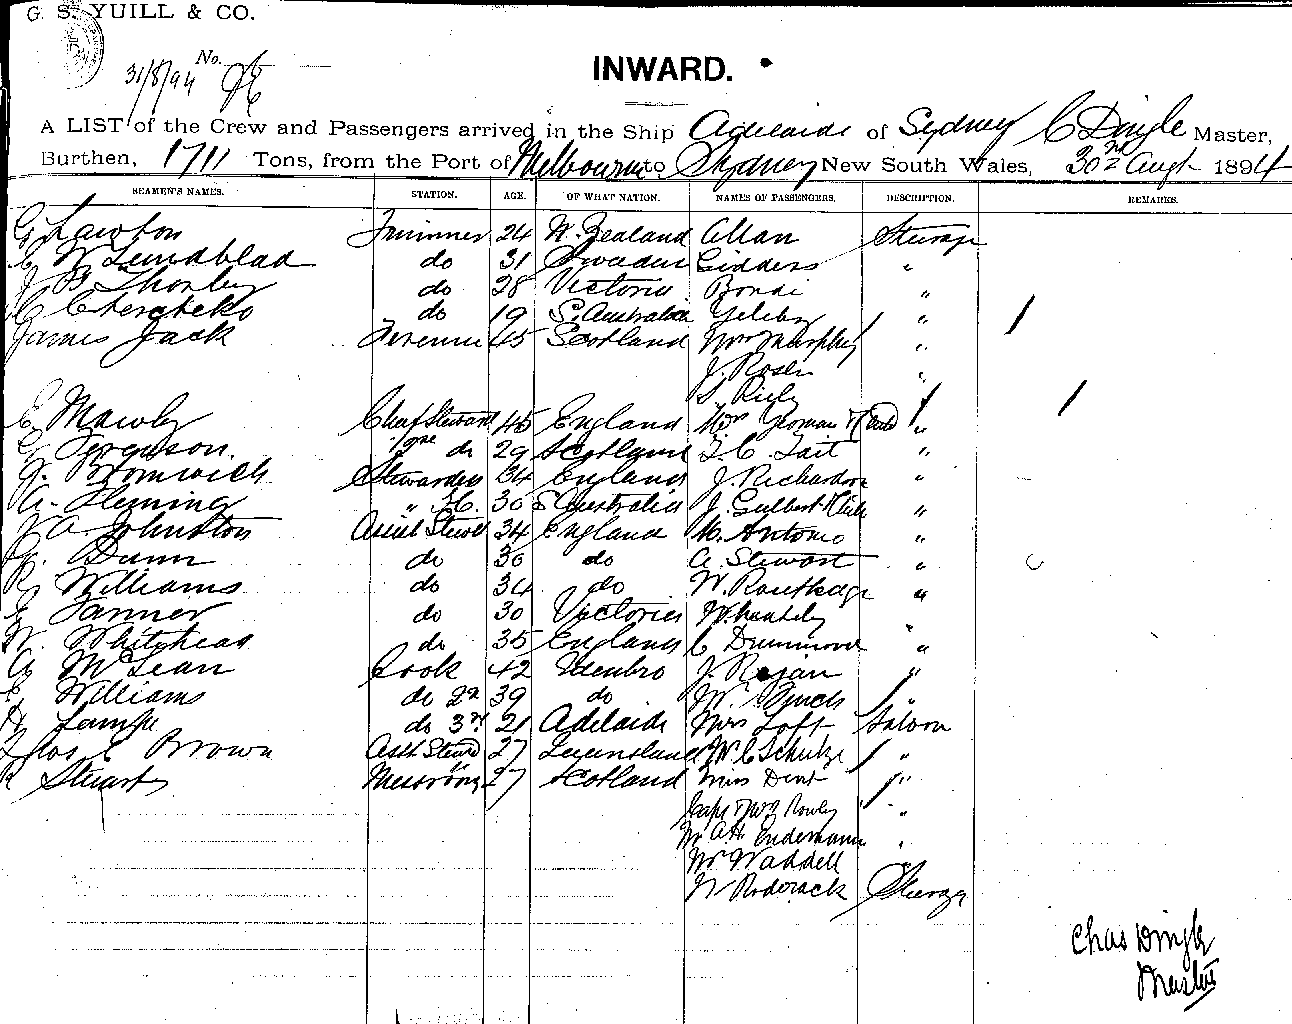 G. S. YUILL & CO.
No.
31/8/94
INWARD.
A LIST of the Crew and Passengers arrived in the Ship Adelaide of Sydney C Dingle Master,
Burthen, 1711 Tons, from the Port of Melbourne to Sydney New South Wales, 30 Augt 1894
SEAMEN'S NAMES. STATION. AGE. OF WHAT NATION. NAMES OF PASSENGERS. DESCRIPTION. REMARKS.
G Lawton Trimmer 24 N. Zealand Allan Steerage
C W Lundblad do 31 Sweden Giddens "
J B Thorley do 28 Victoria Bondi "
do 19 S. Australia "
James Jack Fireman 45 Scotland Mrs Murphy "
J. Rosen "
S. Riely
E Mawby Chief Steward 45 England Mrs "
Ferguson. 2nd do 29 Scotland T. C. Tait "
Bromwich Stewardess 34 England J. Richardson "
A. Fleming " 30 S Australia J. Gilbert "
A Johnston Assist Stewd 34 England M. Antonio "
Dunn do 30 do A. Stewart "
R. Williams do 34 do W. Routledge "
Tanner do 30 Victoria Wheatley "
W. Whitehead do 35 England C Drummond "
A McLean Cook 42 Edenbro J. Rajan "
Williams do 2nd 39 do W. "
do 3rd 21 Adelaide Mrs Loft Saloon
Brown Asst Stewd 27 Queensland W C Schultze "
R Stuart Messroom 27 Scotland Miss Dent "
Capt & Mrs Rowley "
Mr A. H. Endemann "
Mr Waddell
W Roderack Steerage
Chas Dingle
Master